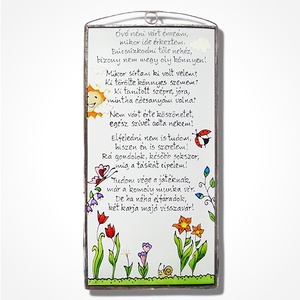 Óvó néni várt engem,
mikor ide érkeztem.
Búcsúzkodni tőle nehéz,
bizony nem megy oly könnyen!
Mikor sírtam ki volt velem?
Ki törölte könnyes szemem?
Ki tanított szépre, jóra,
mintha édesanyám volna?
Nem várt érte köszönetet,
egész szívét adta nekem!
Elfeledni nem is tudom,
hiszen én is szeretem!
Rá gondolok, később sokszor,
míg a táskát cipelem!
Tudom vége a játéknak,
már a komoly munka vár.
De ha néha elfáradok,
két karja majd visszavár!